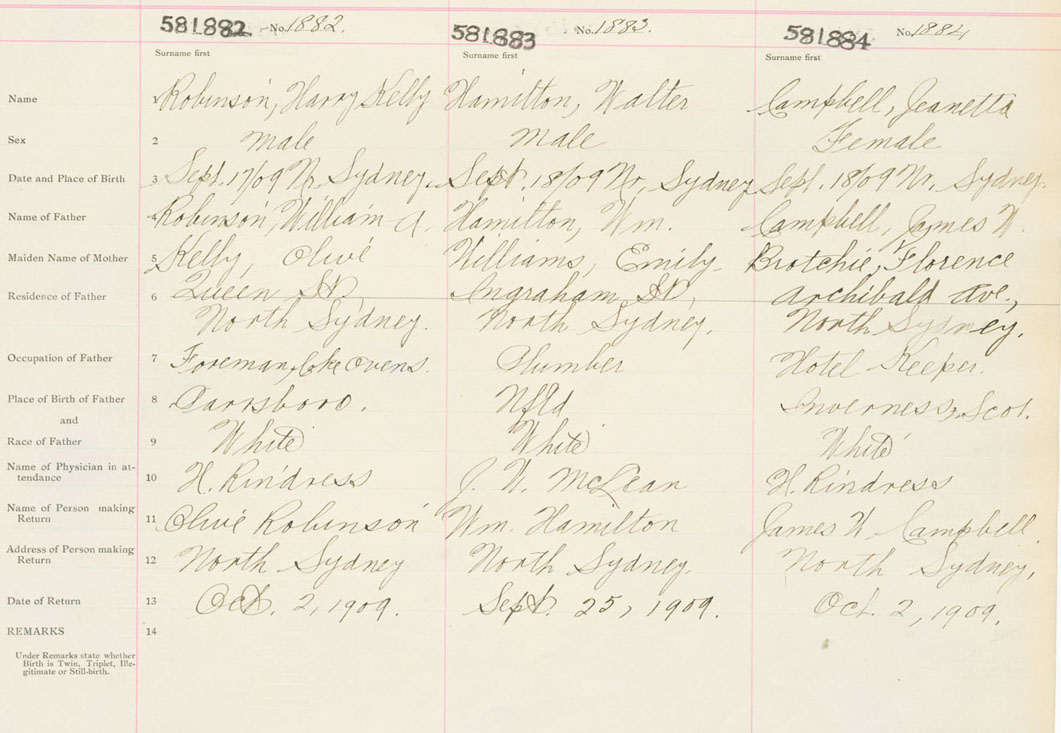 581882 No. 1882. 581883 No. 1883. 581884 No. 1884
Surname first Surname first Surname first
Name 1 Robinson, Harry Kelly Hamilton, Walter Campbell, Jeanetta
Sex 2 Male Male Female
Date and Place of Birth 3 Sept. 17/09 N. Sydney. Sept. 18/09 No, Sydney Sept. 18/09 No, Sydney.
Name of Father 4 Robinson, William A. Hamilton, Wm. Campbell, James W.
Maiden Name of Mother 5 Kelly, Olive Williams, Emily Brotchie, Florence
Residence of Father 6 Queen St, Ingraham St, Archibald Ave.,
North Sydney. North Sydney. North Sydney.
Occupation of Father 7 Foreman, Coke Ovens. Plumber Hotel Keeper.
Place of Birth of Father 8 Parrsboro. Nfld Inverness, Scot.
and
Race of Father 9 White White White
Name of Physician in at-
tendance 10 H. Rindress J. W. McLean H. Rindress
Name of Person making
Return 11 Olive Robinson Wm. Hamilton James W Campbell.
Address of Person making
Return 12 North Sydney North Sydney North Sydney.
Date of Return 13 Oct. 2, 1909. Sept. 25, 1909. Oct. 2, 1909.
REMARKS 14
Under Remarks state whether
Birth is Twin, Triplet, Ille-
gitimate or Still-birth.